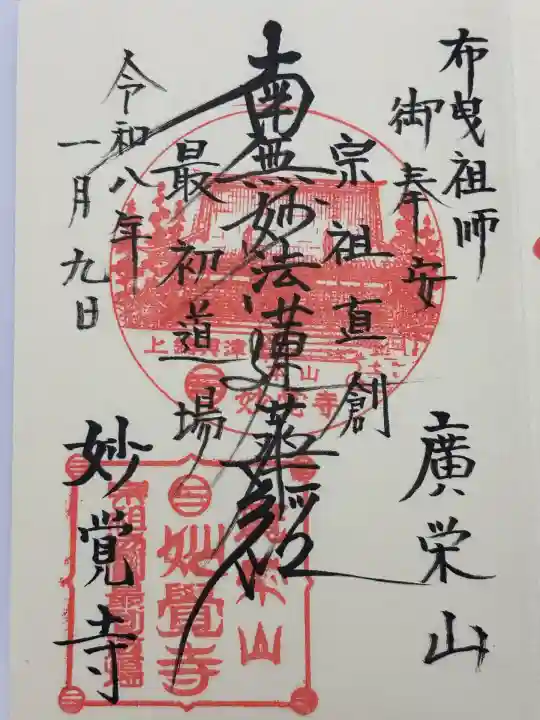 布曳祖師
御奉安
廣栄山
宗祖直創
南無妙法蓮華経
最初道場
令和八年
一月九日
妙覚寺
上総興津
山
妙覚寺
山
妙覺寺